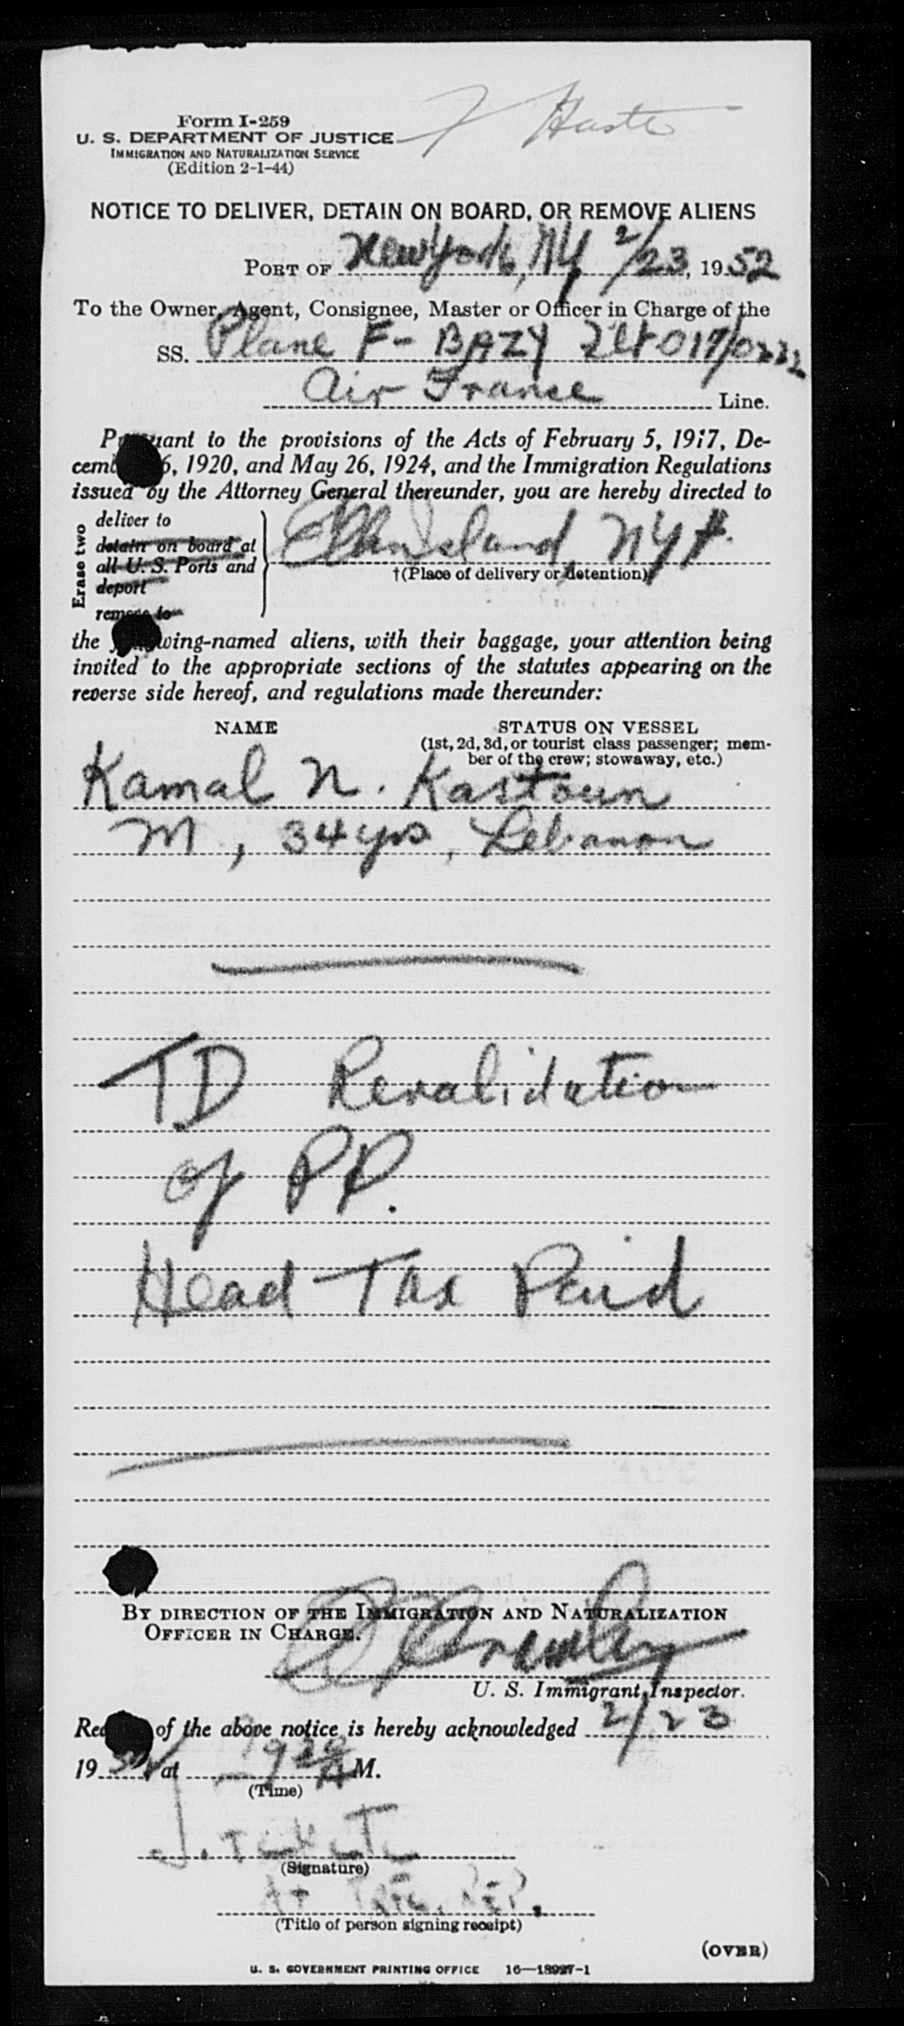 Form I-259
U. S. DEPARTMENT OF JUSTICE
IMMIGRATION AND NATURALIZATION SERVICE
(Edition 2-1-44)
NOTICE TO DELIVER, DETAIN ON BOARD, OR REMOVE ALIENS
PORT OF New York, NY 2/23, 1952
To the Owner, Agent, Consignee, Master or Officer in Charge of the
SS. Plane F-BAZY 017/0222
Air France Line.
Pursuant to the provisions of the Acts of February 5, 1917, De-
cember 26, 1920, and May 26, 1924, and the Immigration Regulations
issued by the Attorney General thereunder, you are hereby directed to
Erase two
deliver to
detain on board at
all U. S. Ports and
deport
remove to
Ellis Island, NY
†(Place of delivery or detention)
the following-named aliens, with their baggage, your attention being
invited to the appropriate sections of the statutes appearing on the
reverse side hereof, and regulations made thereunder:
NAME STATUS ON VESSEL
(1st, 2d, 3d, or tourist class passenger; mem-
ber of the crew; stowaway, etc.)
Kamal N. Kastoun
M, 34 yrs, Lebanon
TD Revalidation
of PP.
Head Tax Paid
BY DIRECTION OF THE IMMIGRATION AND NATURALIZATION
OFFICER IN CHARGE.
Crowley
U. S. Immigrant Inspector.
Receipt of the above notice is hereby acknowledged 2/23
1952 at 9 A M.
(Time)
(Signature)
(Title of person signing receipt)
(OVER)
U. S. GOVERNMENT PRINTING OFFICE 16—18927-1